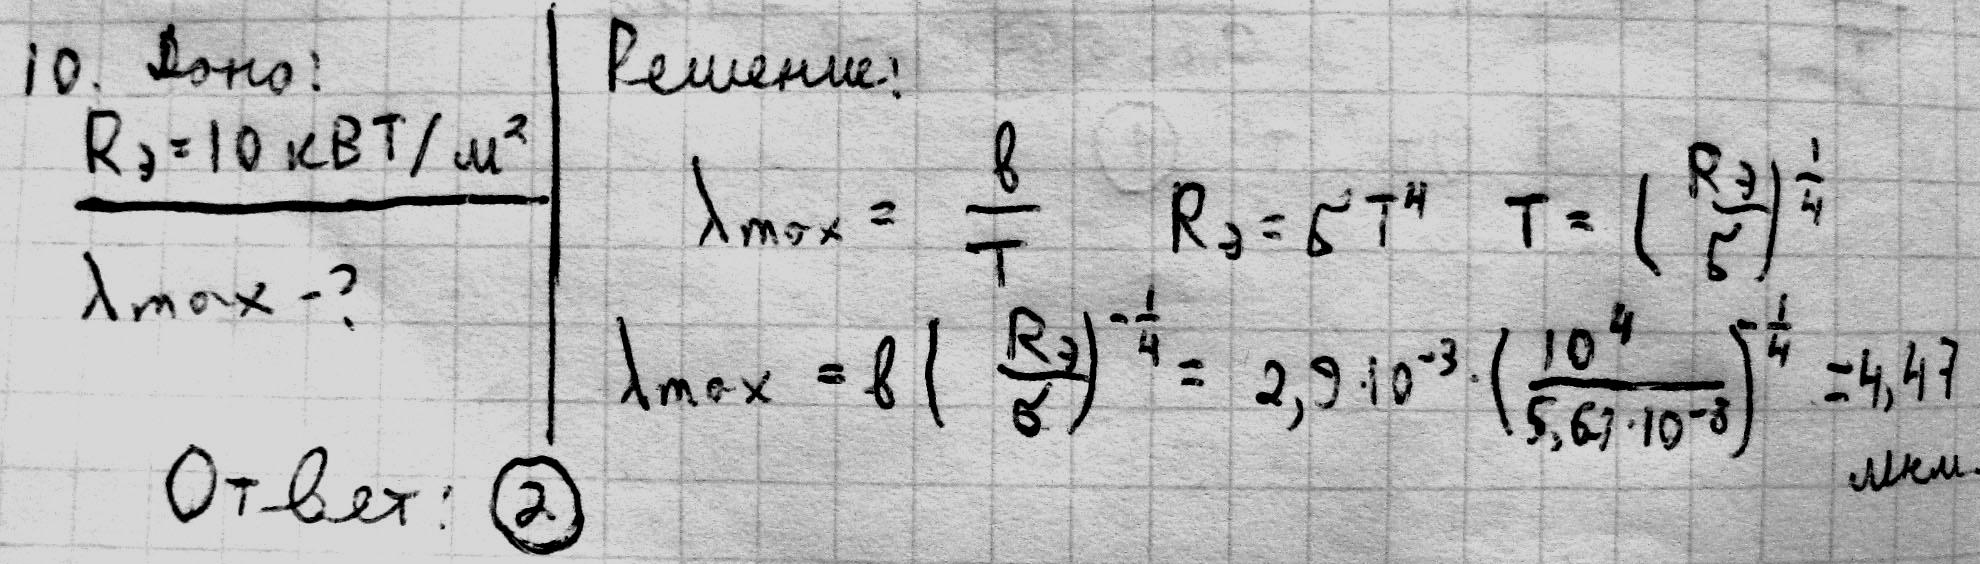 10. Дано:
Rэ = 10 кВт/м²
λmax - ?
Решение:
λmax = b/T Rэ = σT⁴ T = (Rэ/σ)^(1/4)
λmax = b(Rэ/σ)^(-1/4) = 2,9·10⁻³·(10⁴/5,67·10⁻⁸)^(-1/4) = 4,47 мкм.
Ответ: 2